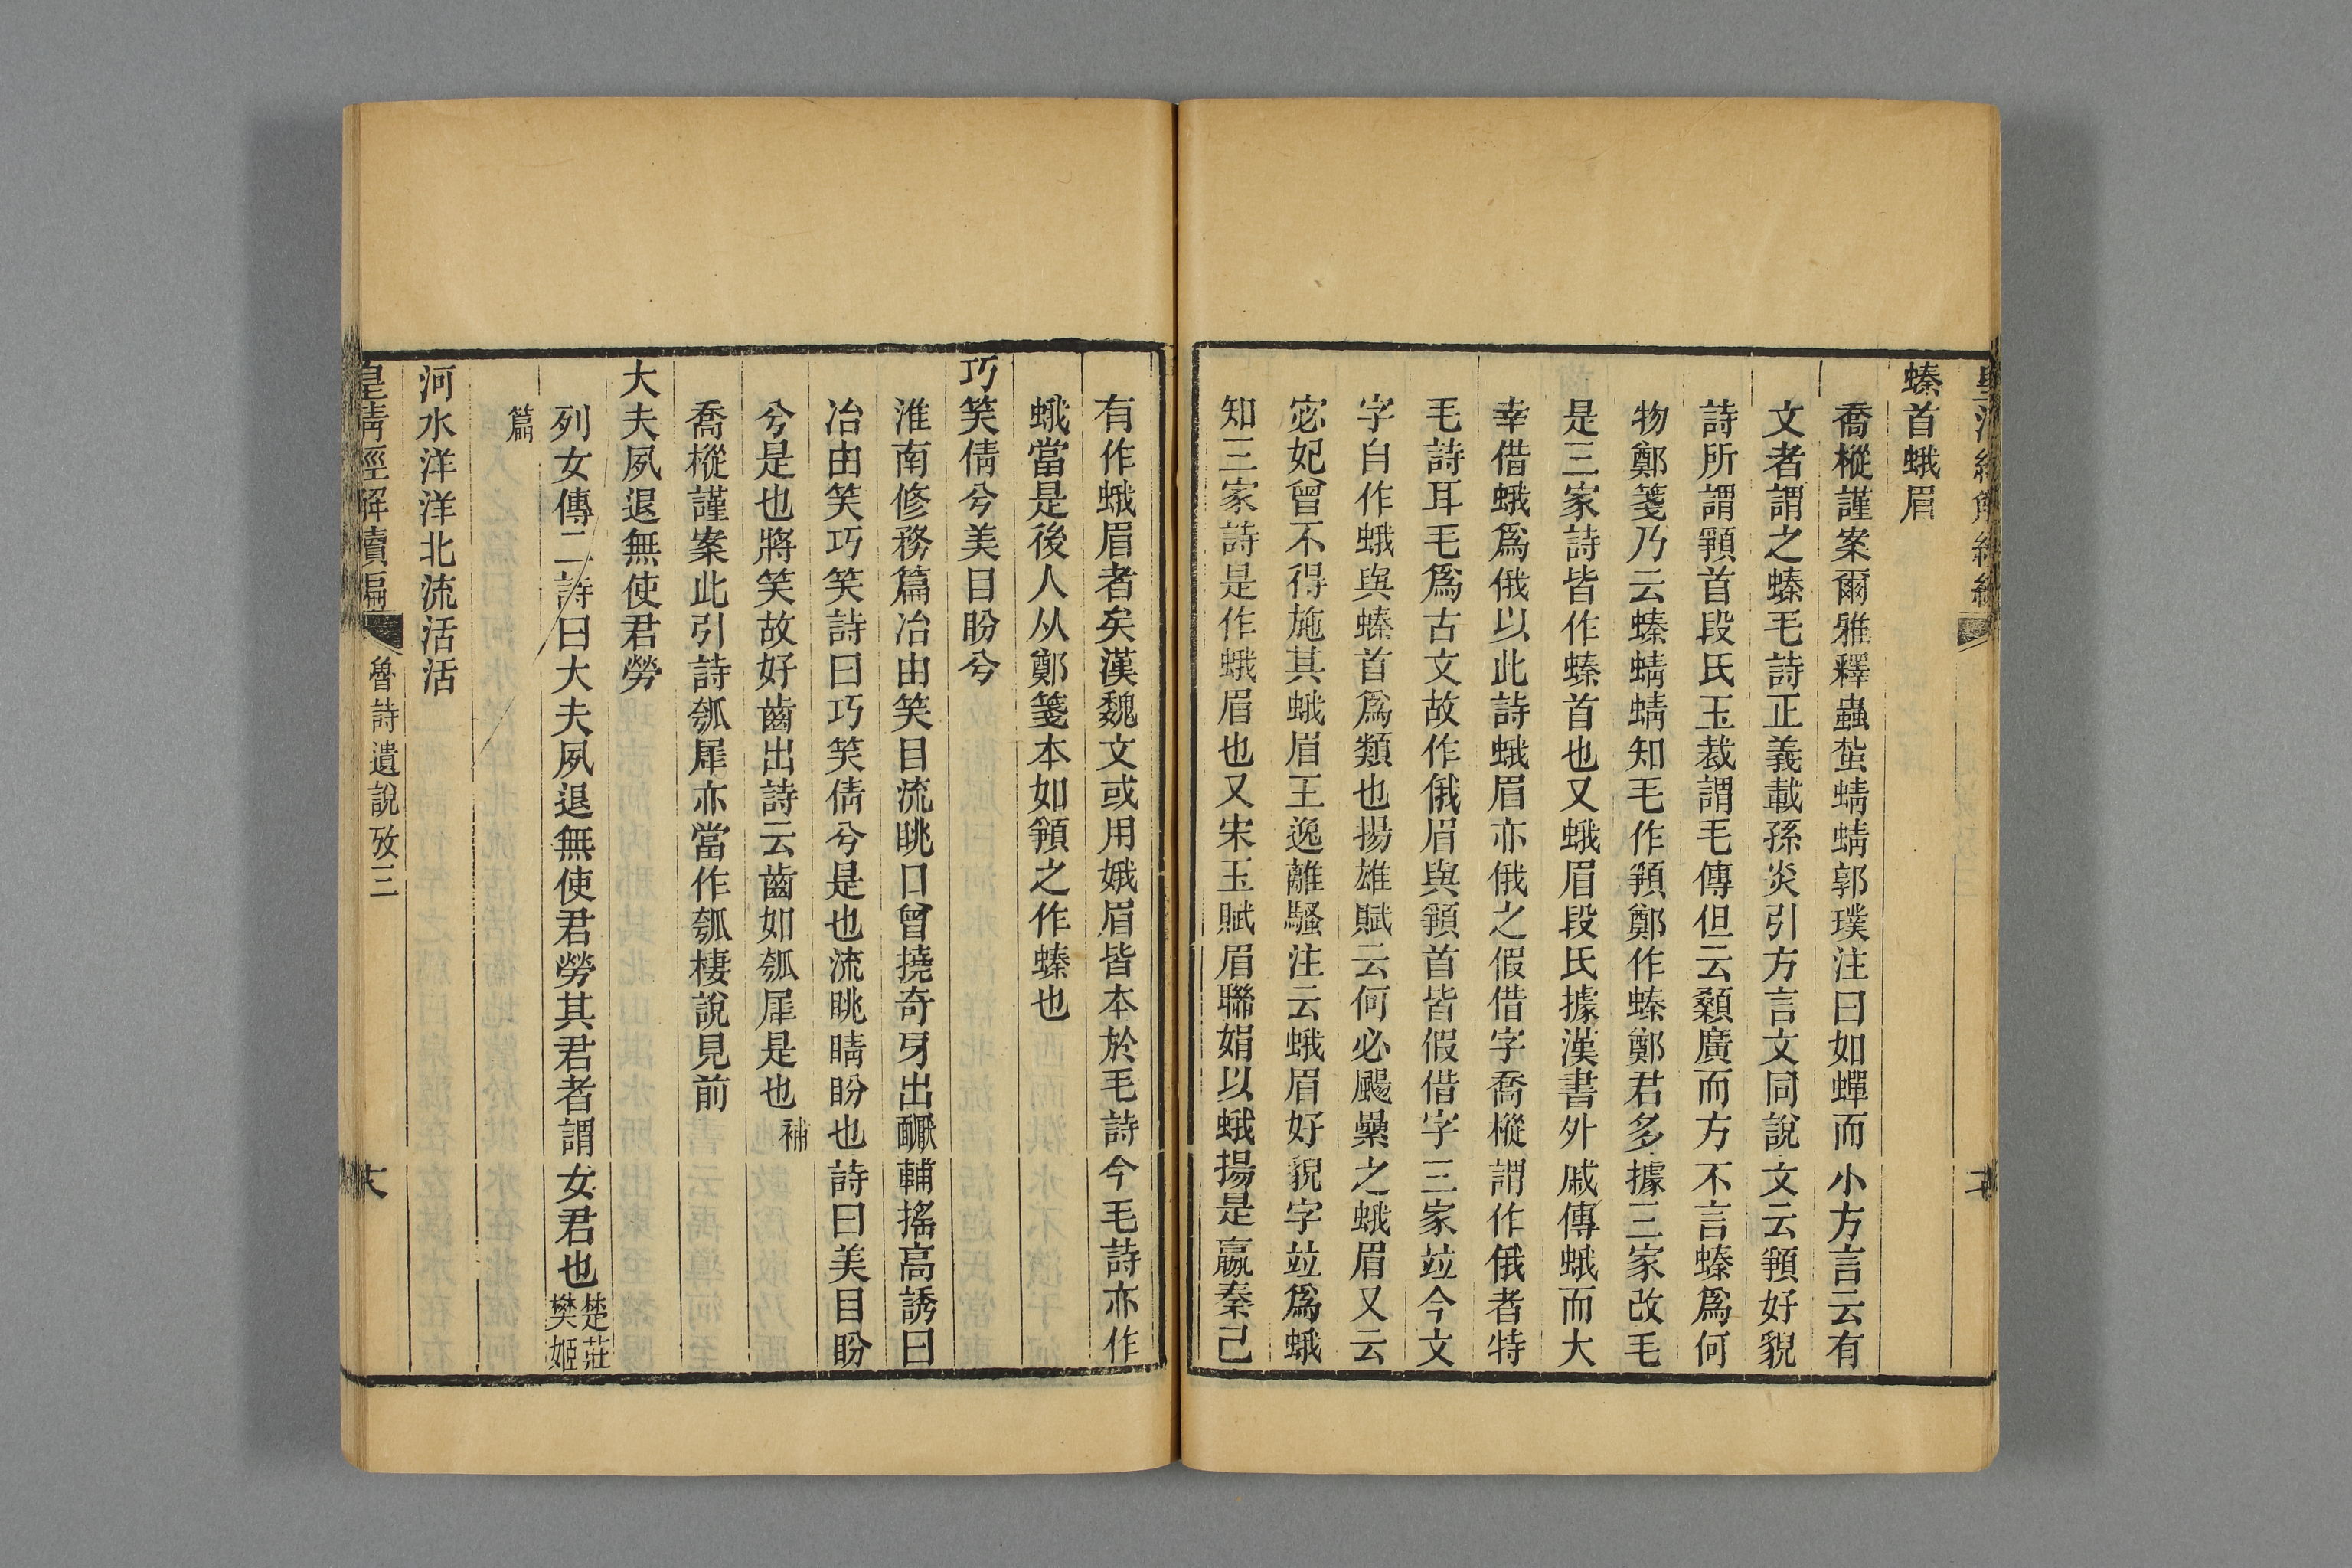 螓首蛾眉
喬樅謹案爾雅釋蟲蚻蜻蜻郭璞注曰如蟬而小方言云有
文者謂之螓毛詩正義載孫炎引方言文同說文云頯好貌
詩所謂頯首段氏玉裁謂毛傳但云顙廣而方不言螓爲何
物鄭箋乃云螓蜻蜻知毛作頯鄭作螓鄭君多據三家改毛
是三家詩皆作螓首也又蛾眉段氏據漢書外戚傳蛾而大
幸借蛾爲俄以此詩蛾眉亦俄之假借字喬樅謂作俄者特
毛詩耳毛爲古文故作俄眉與頯首皆假借字三家竝今文
字自作蛾與螓首爲類也揚雄賦云何必颺纍之蛾眉又云
宓妃曾不得施其蛾眉王逸離騷注云蛾眉好貌字竝爲蛾
知三家詩是作蛾眉也又宋玉賦眉聯娟以蛾揚是嬴秦己
有作蛾眉者矣漢魏文或用娥眉皆本於毛詩今毛詩亦作
蛾當是後人从鄭箋本如頯之作螓也
巧笑倩兮美目盼兮
淮南修務篇冶由笑目流眺口曾撓奇牙出靨輔搖高誘曰
冶由笑巧笑詩曰巧笑倩兮是也流眺睛盼也詩曰美目盼
兮是也將笑故好齒出詩云齒如瓠犀是也補
喬樅謹案此引詩瓠犀亦當作瓠棲說見前
大夫夙退無使君勞
列女傳二詩曰大夫夙退無使君勞其君者謂女君也楚莊樊姬
篇
河水洋洋北流活活
皇清經解續編 魯詩遺說攷三